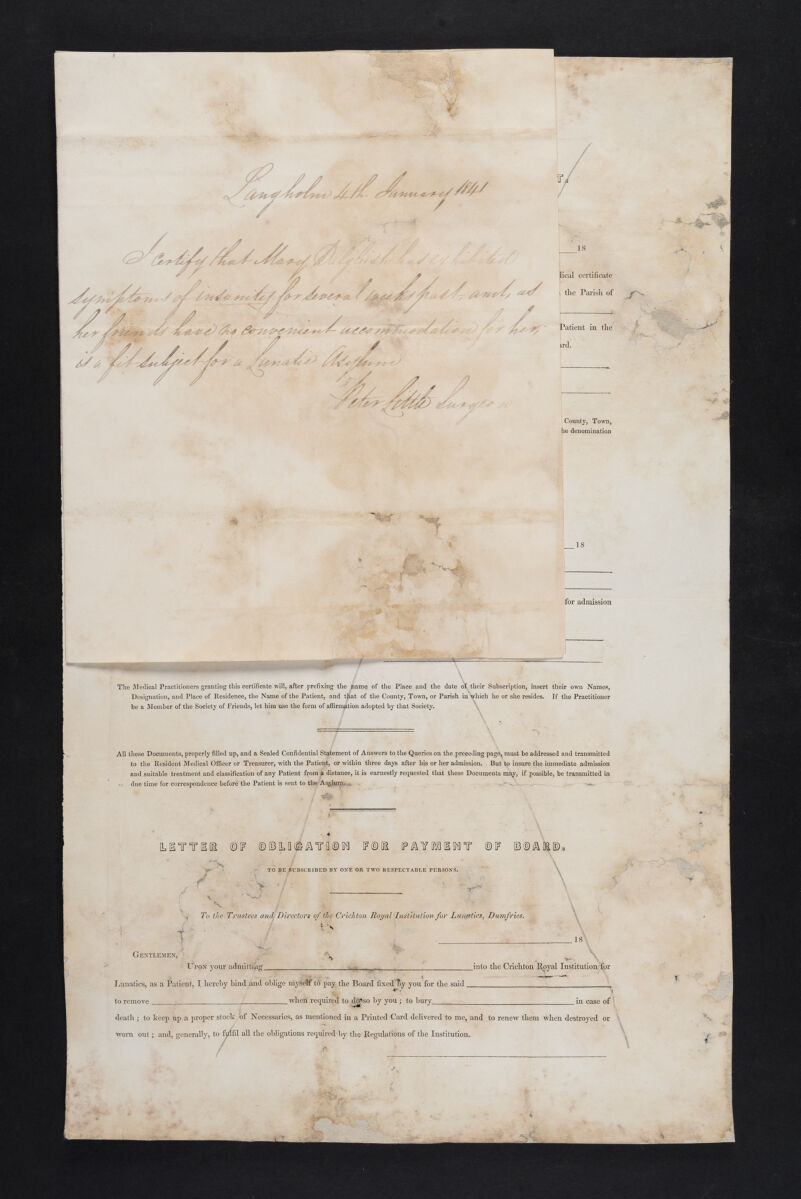 Langholm 4th January 1841
I certify that Mary has exhibited
symptoms of insanity for several weeks past, and, as
her friends have no convenient accommodation for her,
is a fit subject for a Lunatic Asylum
Peter Little Surgeon
T.
18
dical certificate
the Parish of
Patient in the
ard.
County, Town,
he denomination
18
for admission
The Medical Practitioners granting this certificate will, after prefixing the name of the Place and the date of their Subscription, insert their own Names,
Designation, and Place of Residence, the Name of the Patient, and that of the County, Town, or Parish in which he or she resides. If the Practitioner
be a Member of the Society of Friends, let him use the form of affirmation adopted by that Society.
All these Documents, properly filled up, and a Sealed Confidential Statement of Answers to the Queries on the preceding page, must be addressed and transmitted
to the Resident Medical Officer or Treasurer, with the Patient, or within three days after his or her admission. But to insure the immediate admission
and suitable treatment and classification of any Patient from a distance, it is earnestly requested that these Documents may, if possible, be transmitted in
due time for correspondence before the Patient is sent to the Asylum.
LETTER OF OBLIGATION FOR PAYMENT OF BOARD.
TO BE SUBSCRIBED BY ONE OR TWO RESPECTABLE PERSONS.
To the Trustees and Directors of the Crichton Royal Institution for Lunatics, Dumfries.
18
GENTLEMEN,
UPON your admitting into the Crichton Royal Institution for
Lunatics, as a Patient, I hereby bind and oblige myself to pay the Board fixed by you for the said
to remove when required to do so by you; to bury in case of
death; to keep up a proper stock of Necessaries, as mentioned in a Printed Card delivered to me, and to renew them when destroyed or
worn out; and, generally, to fulfil all the obligations required by the Regulations of the Institution.